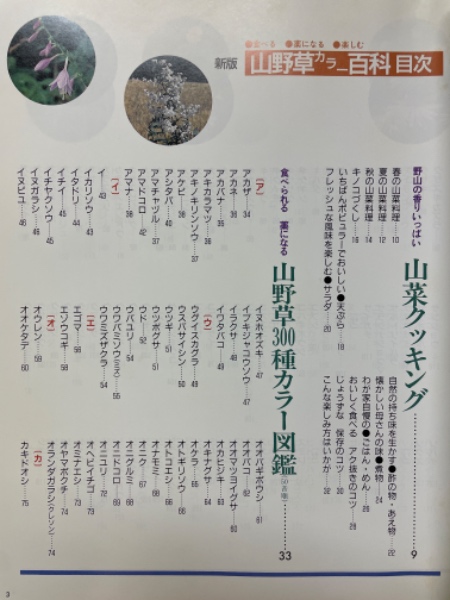 ●食べる ●薬になる ●楽しむ
新版 山野草カラー百科 目次
野山の香りいっぱい
山菜クッキング……9
春の山菜料理……10
夏の山菜料理……12
秋の山菜料理……14
キノコづくし……16
いちばんポピュラーでおいしい●天ぷら……18
フレッシュな風味を楽しむ●サラダ……20
自然の持ち味を生かす●酢の物・あえ物……22
懐かしい母さんの味●煮物……24
わが家自慢の●ごはん・めん……26
おいしく食べる アク抜きのコツ……28
じょうずな 保存のコツ……30
こんな楽しみ方はいかが……32
食べられる 薬になる
山野草300種カラー図鑑……33
[ア]
アカザ……34
アカネ……35
アカバナ……35
アキカラマツ……36
アキノキリンソウ……37
アケビ……38
アシタバ……40
アマチャヅル……37
アマドコロ……42
アマナ……38
[イ]
イ……43
イカリソウ……43
イタドリ……44
イチイ……45
イチヤクソウ……45
イヌガラシ……46
イヌビユ……46
イヌホオズキ……47
イブキジャコウソウ……47
イラクサ……48
イワタバコ……49
[ウ]
ウグイスカグラ……49
ウスバサイシン……50
ウツギ……51
ウツボグサ……51
ウド……52
ウバユリ……54
ウワバミソウ(ミズ)……55
ウワミズザクラ……54
[エ]
エゴマ……56
エゾウコギ……58
[オ]
オウレン……59
オオケタデ……60
オオバギボウシ……61
オオバコ……62
オオマツヨイグサ……60
オカヒジキ……63
オキナグサ……64
オケラ……65
オトギリソウ……66
オトコエシ……66
オナモミ……68
オニク……67
オニグルミ……68
オニドコロ……69
オニユリ……72
オヘビイチゴ……73
オミナエシ……73
オヤマボクチ……74
オランダガラシ(クレソン)……74
[カ]
カキドオシ……75
3